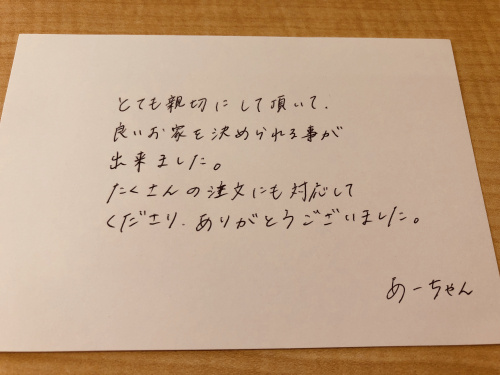 とても親切にして頂いて、
良いお家を決められる事が
出来ました。
たくさんの注文にも対応して
くださり、ありがとうございました。
あーちゃん